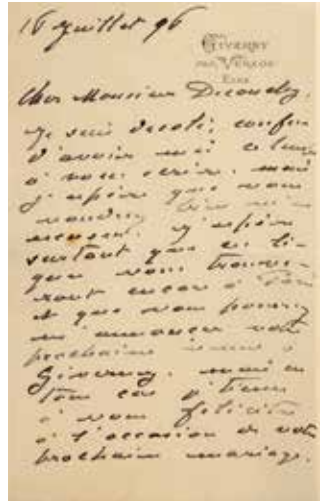 16 juillet 96
GIVERNY
PAR VERNON
EURE
Cher Monsieur Deconchy,
Je suis desolé, confus
d'avoir mis ce temps
à vous écrire, mais
j'espère que vous
voudrez bien m'en
excuser. J'espère
surtout que ces li-
gnes vous trouve-
ront encore à Paris
et que vous pourrez
m'annoncer votre
prochaine venue à
Giverny. mais en
tous cas je tiens
à vous féliciter
à l'occasion de votre
prochain mariage.